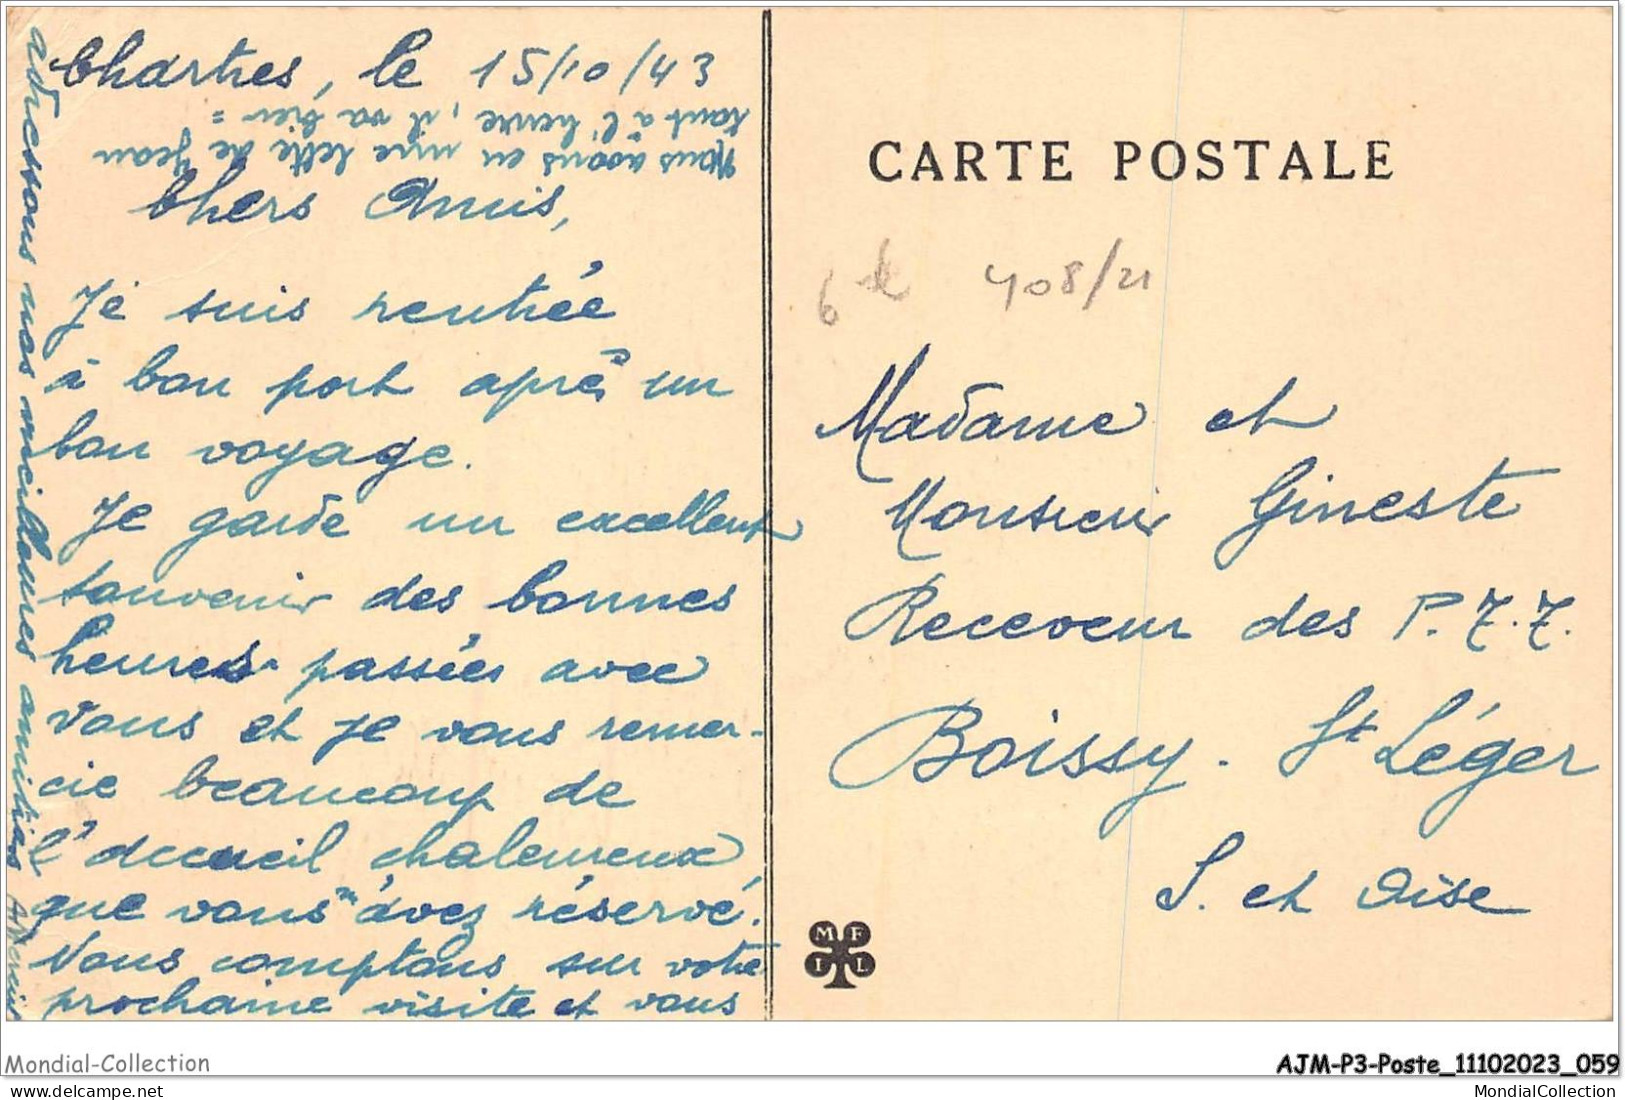 Chartres, le 15/10/43
Chers Amis,
Je suis rentrée
à bon port après un
bon voyage.
Je garde un excellent
souvenir des bonnes
heures passées avec
vous et je vous remer-
cie beaucoup de
l'accueil chaleureux
que vous m'avez réservé.
Nous comptons sur votre
prochaine visite et vous
adressons nos meilleures amitiés
Nous avons eu une lettre de Jean
tout à l'heure, il va bien =
CARTE POSTALE
408/21
Madame et
Monsieur Gineste
Receveur des P.T.T.
Boissy. St Léger
S. et Oise
M F
I L
Mondial-Collection
AJM-P3-Poste_11102023_059
mage © MondialCollection
MondialCollection